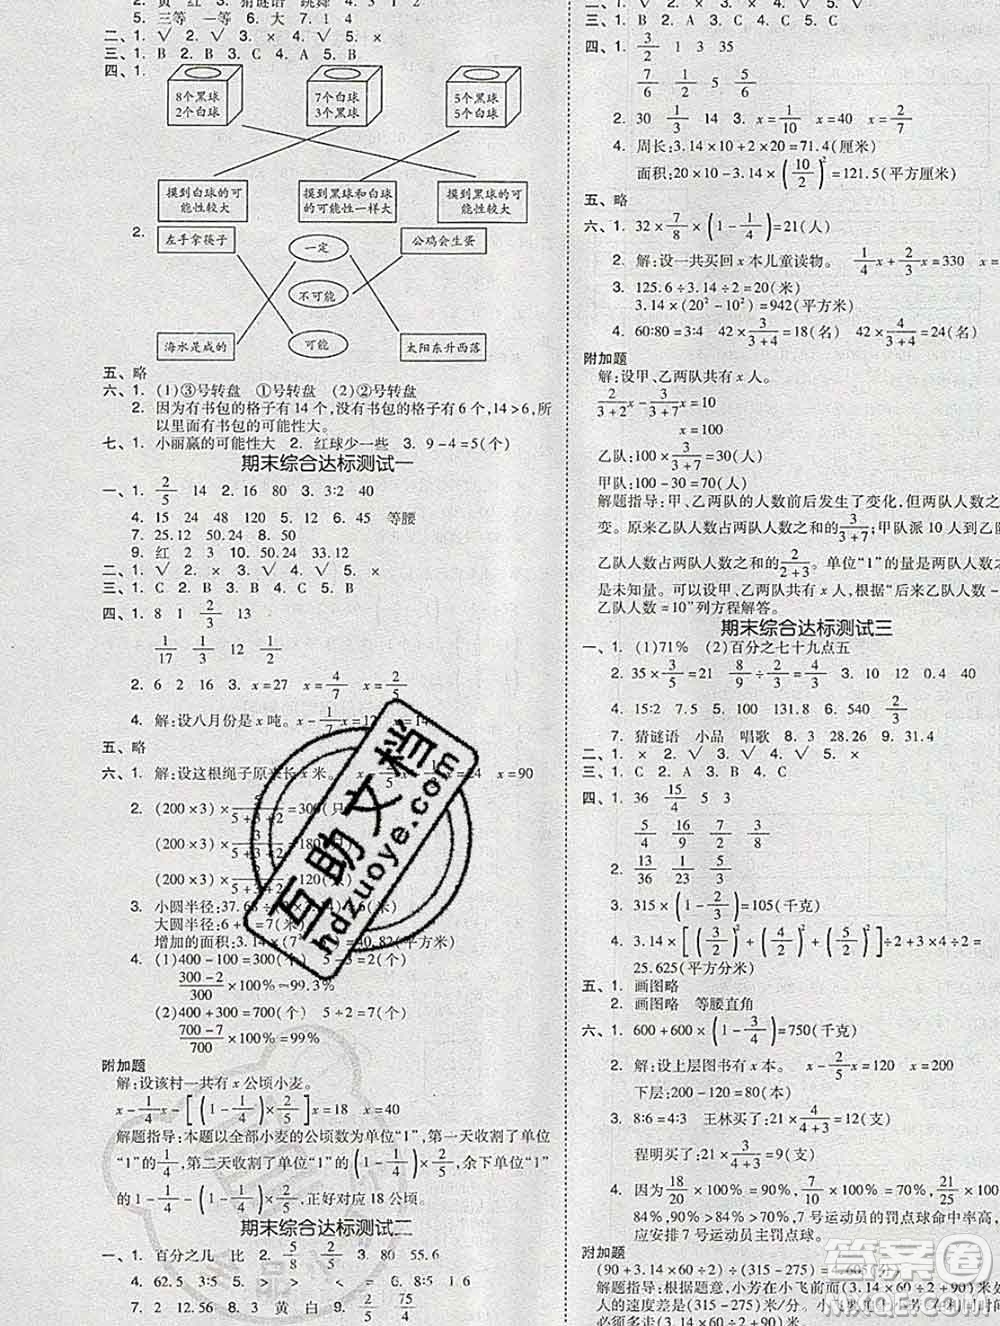 5. 三等 一等 6. 大 7. 1 4
二、1. √ 2. √ 3. × 4. √ 5. ×
三、1. B 2. B 3. C 4. A 5. B
四、1.
8个黑球 2个白球
7个白球 3个黑球
5个黑球 5个白球
摸到白球的可能性较大
摸到黑球和白球的可能性一样大
摸到黑球的可能性较大
2.
左手拿筷子 一定 公鸡会生蛋
不可能
海水是咸的 可能 太阳东升西落
五、略
六、1. (1)③号转盘 ①号转盘 (2)②号转盘
2. 因为有书包的格子有 14 个,没有书包的格子有 6 个,14>6,所
以里面有书包的可能性大
七、1. 小丽赢的可能性大 2. 红球少一些 3. 9-4=5(个)
期末综合达标测试一
一、1. 2/5 14 2. 16 80 3. 3∶2 40
4. 15 24 48 120 5. 12 6. 45 等腰
7. 25.12 50.24 8. 50
9. 红 2 3 10. 50.24 33.12
二、1. √ 2. × 3. × 4. √ 5. ×
三、1. C 2. B 3. B 4. C 5. A
四、1. 8 1 2/3 13
1/17 1/3 12 1/5
2. 6 2 16 3. x=27 x=4/7 x=2/5
4. 解:设八月份是 x 吨。 x-1/7x=12 x=14
五、略
六、1. 解:设这根绳子原来长 x 米。 x=90
2. (200×3)×
(200×3)×
(200×3)×
3. 小圆半径:37.68
大圆半径:6+1=7(米)
增加的面积:3.14×(7² =40.82(平方米)
4. (1)400-100=300(个) 5-2=3(个)
(300-2)/300×100%≈99.3%
(2)400+300=700(个) 5+2=7(个)
(700-7)/700×100%=99%
附加题
解:设该村一共有 x 公顷小麦。
x-1/4x-[(1-1/4)×2/5]x=18 x=40
解题指导:本题以全部小麦的公顷数为单位“1”,第一天收割了单位
“1”的1/4,第二天收割了单位“1”的(1-1/4)×2/5,余下单位“1”
的1-1/4-(1-1/4)×2/5,正好对应 18 公顷。
期末综合达标测试二
一、1. 百分之几 比 2. 5/8 2/5 3. 80 55.6
4. 62.5 3∶5
7. 2 12.56 8. 3 黄 白 9.
二、1. √ 2. √ 3. × 4. × 5. √
三、1. B 2. A 3. C 4. C 5. C
四、1. 3/2 1 3 35
7/6 1/6 1 5/6
2. 30 1/3 14 3. x=1/10 x=40 x=2/7
4. 周长:3.14×10×2+20×… =71.4(厘米)
面积:20×10-3.14×(10/2)²=121.5(平方厘米)
五、略
六、1. 32×7/8×(1-1/4)=21(人)
2. 解:设一共买回 x 本儿童读物。 1/4x+2/3x=330
3. 125.6÷3.14÷2=20(米)
3.14×(20²-10²)=942(平方米)
4. 60∶80=3∶4 42×3/(3+4)=18(名) 42×4/(3+4)=24(名)
附加题
解:设甲、乙两队共有 x 人。
2/(3+2)x-3/(3+7)x=10
x=100
乙队:100×3/(3+7)=30(人)
甲队:100-30=70(人)
解题指导:甲、乙两队的人数前后发生了变化,但两队的
变。原来乙队人数占两队人数之和的3/(3+7);甲队派 10 人到乙
乙队人数占两队人数之和的2/(2+3)。单位“1”的量是两队人
是未知量。可以设甲、乙两队共有 x 人,根据“后来乙队人数-
乙队人数=10”列方程解答。
期末综合达标测试三
一、1. (1)71% (2)百分之七十九点五
2. 35×3/5=21 8/9÷2/3=4/3 3. 10 12 0.4
4. 15∶2 7.5 5. 100 131.8 6. 540 2/9
7. 猜谜语 小品 唱歌 8. 3 28.26 9. 31.4
二、1. × 2. √ 3. √ 4. √ 5. ×
三、1. C 2. A 3. B 4. B 5. C
四、1. 36 15/4 5 3
5/4 16/9 7/2 3/8
2. 13/36 4/15 1/4 5/8
3. 315×(1-2/3)=105(千克)
4. 3.14×[(3/2)²+(4/2)²+(5/2)²]÷2+3×4÷2=
25.625(平方分米)
五、1. 画图略
2. 画图略 等腰直角
六、1. 600+600×(1-3/4)=750(千克)
2. 解:设上层图书有 x 本。 x-2/5x=120 x=200
下层:200-120=80(本)
3. 8∶6=4∶3 王林买了:21×4/(4+3)=12(支)
程明买了:21×3/(4+3)=9(支)
4. 因为18/20×100%=90%, 21/25×100
84%,90%>84%>80%,7 号运动员的罚点球命中率高,
应安排 7 号运动员主罚点球。
附加题
(90+3.14×60÷2)÷(315-275)×275=
解题指导:根据题意,小芳在小飞前面(3.14×60÷2+90)
人的速度差是(315-275)米/分,
必须多走(3.14×60÷2+90)
互助文档
hdzuoye.com
答案圈
MXQE.COM